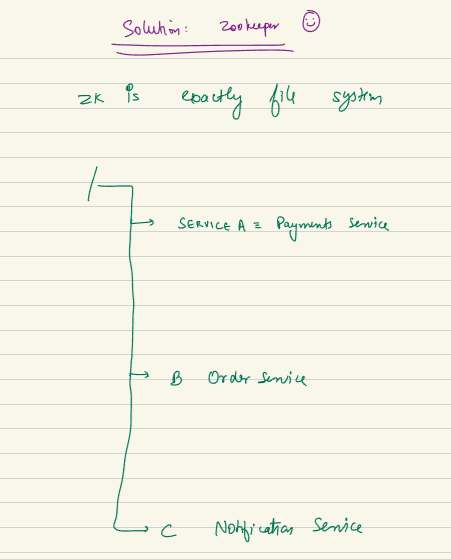 Solution: Zookeeper ☺
ZK is exactly file system
/
SERVICE A = Payments Service
B Order Service
C Notification Service